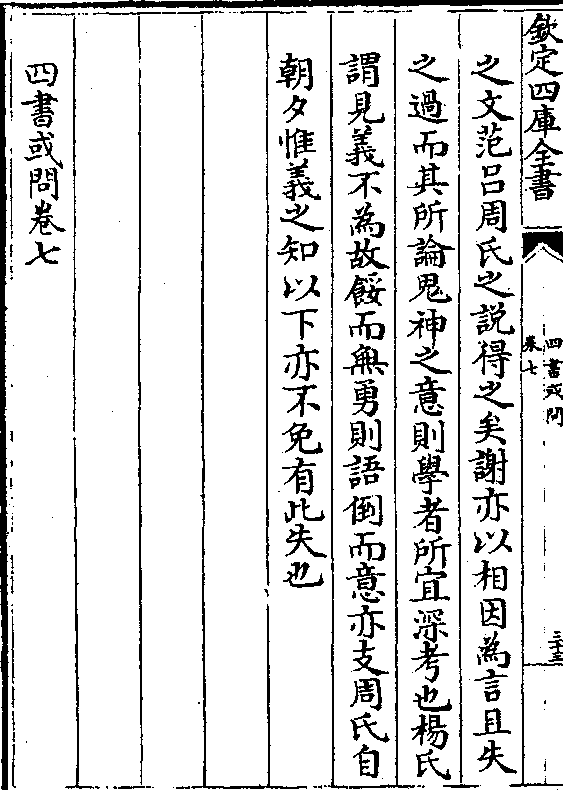 欽定四庫全書
四書或問
卷七
三十三
之文范吕周氏之説得之矣謝亦以相因為言且失
之過而其所論鬼神之意則學者所宜深考也楊氏
謂見義不為故餒而無勇則語倒而意亦支周氏自
朝夕惟義之知以下亦不免有此失也
四書或問卷七